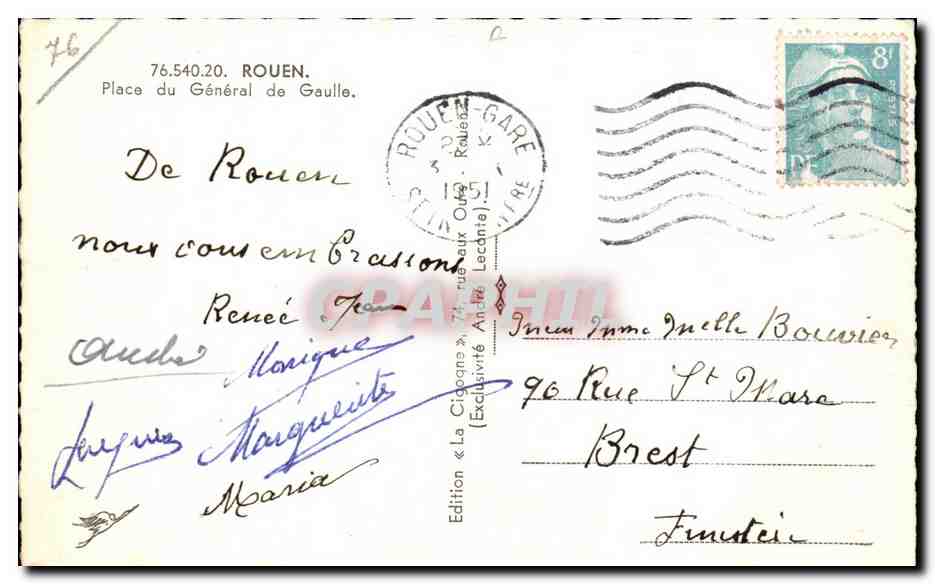 76
76.540.20. ROUEN.
Place du Général de Gaulle.
De Rouen
nous vous embrassons
Renée Jean
André Monique
Jacques Marguerite
Maria
Edition « La Cigogne », 74, rue aux Ours - Rouen.
(Exclusivité André Leconte).
ROUEN-GARE
1951
8f
CPAPHIL
Mmelle Bouvier
90 Rue St Marc
Brest
Finistère